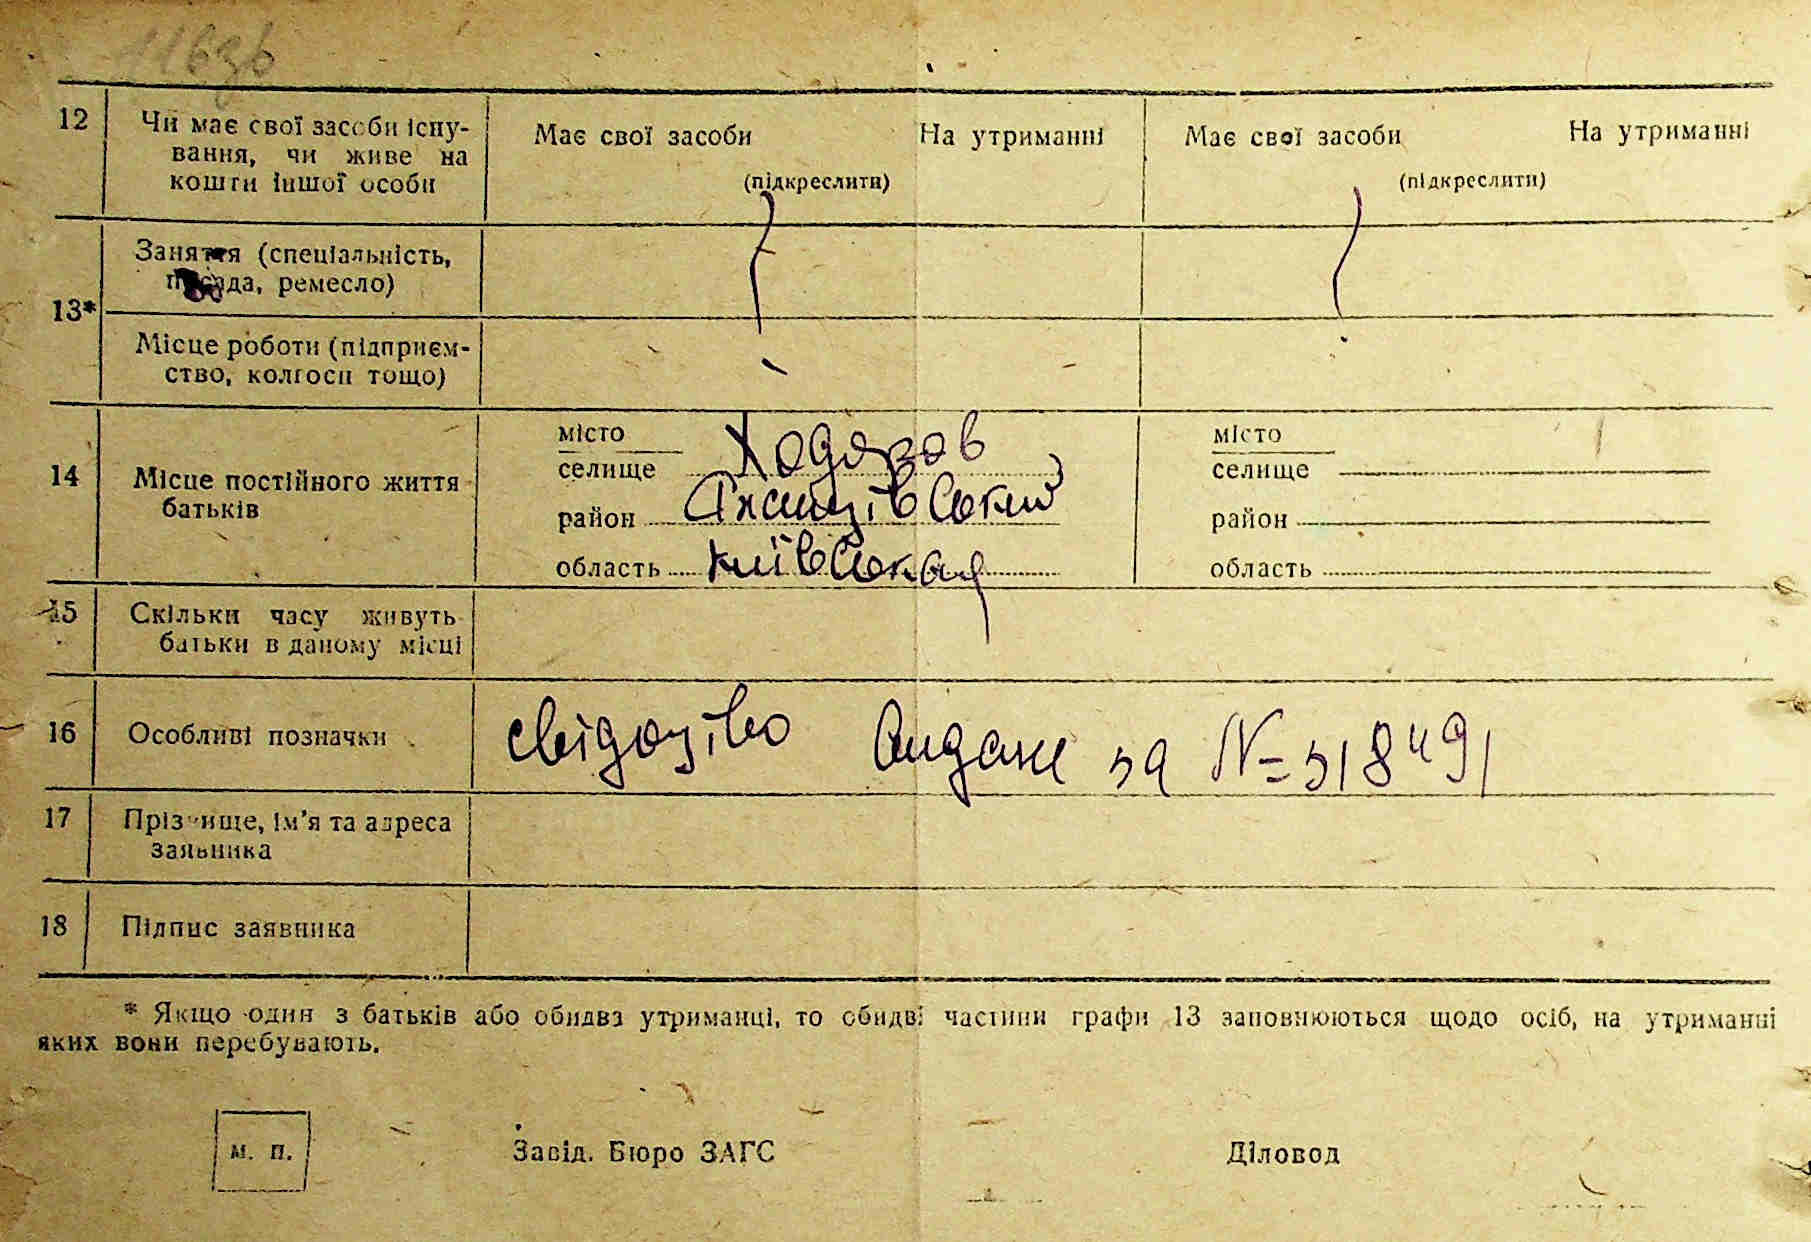 12
Чи має свої засоби існу-
вання, чи живе на
кошти іншої особи
Має свої засоби На утриманні
(підкреслити)
Має свої засоби На утриманні
(підкреслити)
13*
Заняття (спеціальність,
посада, ремесло)
Місце роботи (підприєм-
ство, колгосп тощо)
14
Місце постійного життя
батьків
місто
селище Ходоров
район
область Київськая
місто
селище
район
область
15
Скільки часу живуть
батьки в даному місці
16
Особливі позначки
свідоцтво видане за № 318491
17
Прізвище, ім'я та адреса
заявника
18
Підпис заявника
* Якщо один з батьків або обидва утриманці, то обидві частини графи 13 заповнюються щодо осіб, на утриманні
яких вони перебувають.
м. п.
Завід. Бюро ЗАГС
Діловод